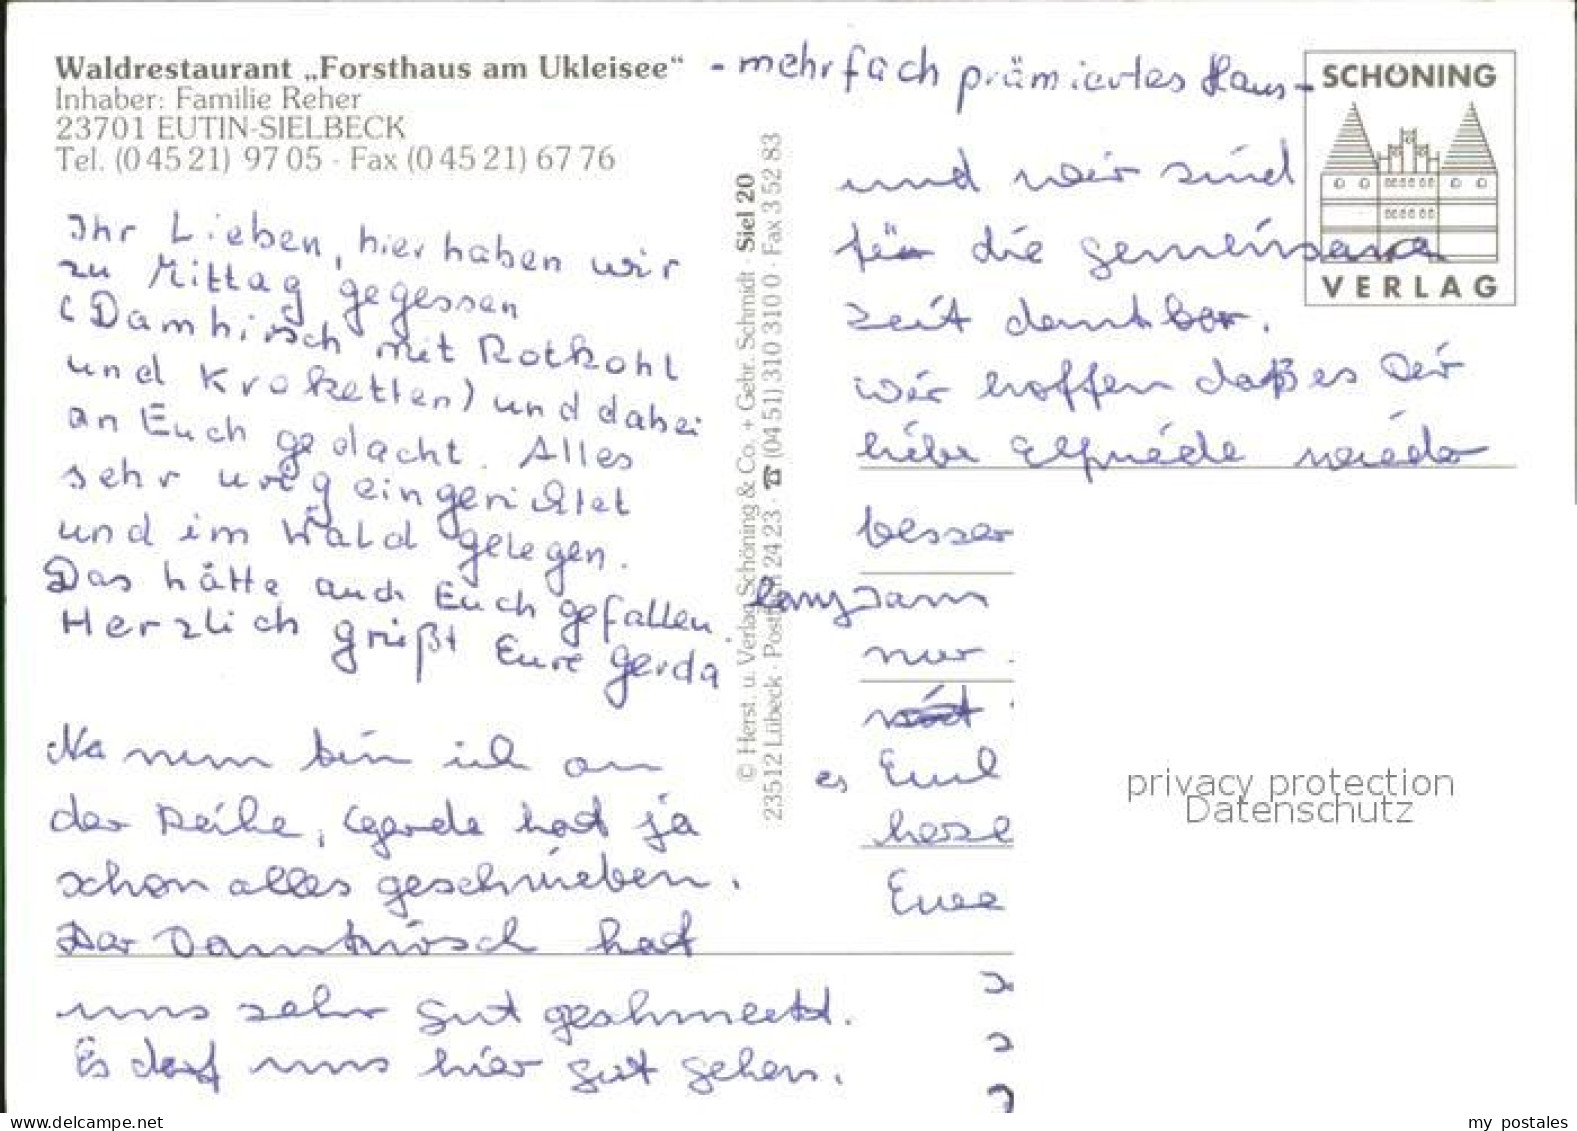 Waldrestaurant „Forsthaus am Ukleisee“ - mehrfach prämiertes Haus -
Inhaber: Familie Reher
23701 EUTIN-SIELBECK
Tel. (0 45 21) 97 05 - Fax (0 45 21) 67 76
Ihr Lieben, hier haben wir
zu Mittag gegessen
(Damhirsch mit Rotkohl
und Kroketten) und dabei
an Euch gedacht. Alles
sehr urig eingerichtet
und im Wald gelegen.
Das hätte auch Euch gefallen.
Herzlich grüßt Eure Gerda
Na nun bin ich an
der Reihe, Gerda hat ja
schon alles geschrieben.
Der Damhirsch hat
uns sehr gut geschmeckt.
Es darf uns hier gut gehen.
© Herst. u. Verlag Schöning & Co. + Gebr. Schmidt · Siel 20
23512 Lübeck · Postfach 24 23 · ☎ (04 51) 310 310 0 · Fax 3 52 83
und wir sind
für die gemeinsame
Zeit dankbar.
Wir hoffen daß es Dir
liebe Elfriede wieder
besser
langsam
nur
es Euch
herzl
Eure
SCHÖNING
VERLAG
privacy protection
Datenschutz
www.delcampe.net
my_postales